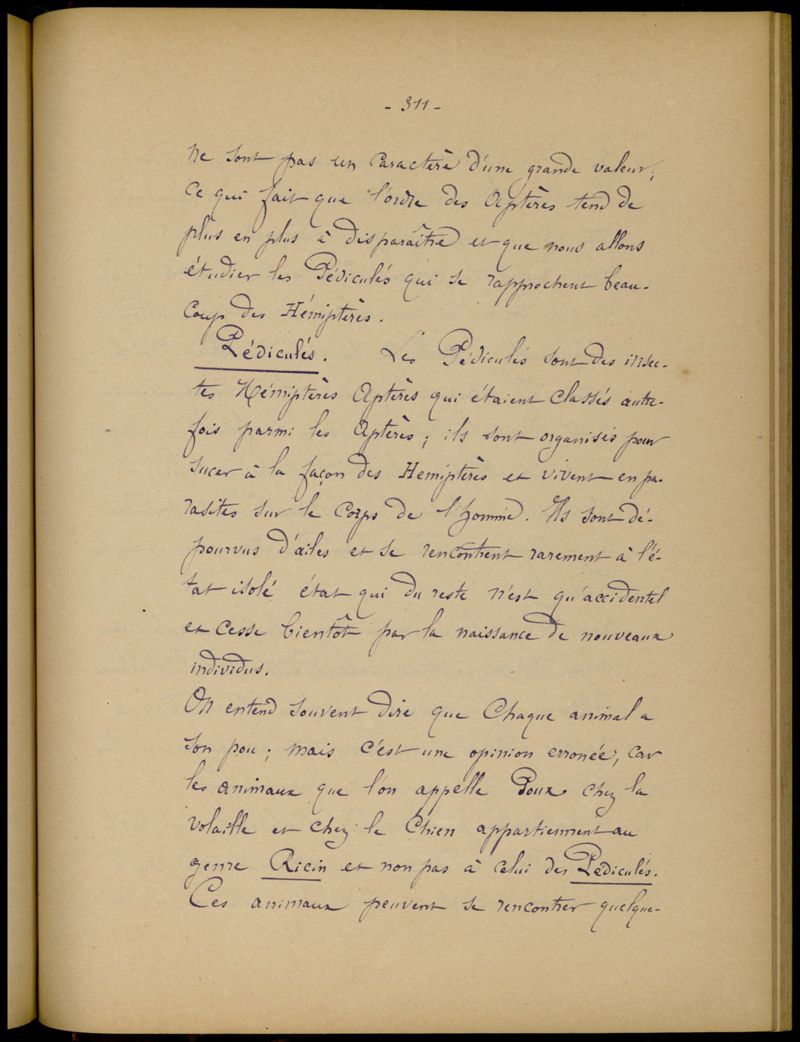 - 311 -
ne sont pas un caractère d'une grande valeur,
ce qui fait que l'ordre des Aptères tend de
plus en plus à disparaître et que nous allons
étudier les Pédiculés qui se rapprochent beau-
coup des Hémiptères.
Pédiculés. Les Pédiculés sont des insec-
tes Hémiptères Aptères qui étaient classés autre-
fois parmi les Aptères ; ils sont organisés pour
sucer à la façon des Hemiptères et vivent en pa-
rasites sur le corps de l'homme. Ils sont dé-
pourvus d'ailes et se rencontrent rarement à l'é-
tat isolé état qui du reste n'est qu'accidentel
et cesse bientôt par la naissance de nouveaux
individus.
On entend souvent dire que chaque animal a
son pou ; mais c'est une opinion erronée, car
les animaux que l'on appelle Poux chez la
volaille et chez le Chien appartiennent au
genre Ricin et non pas à celui des Pédiculés.
Ces animaux peuvent se rencontrer quelque-